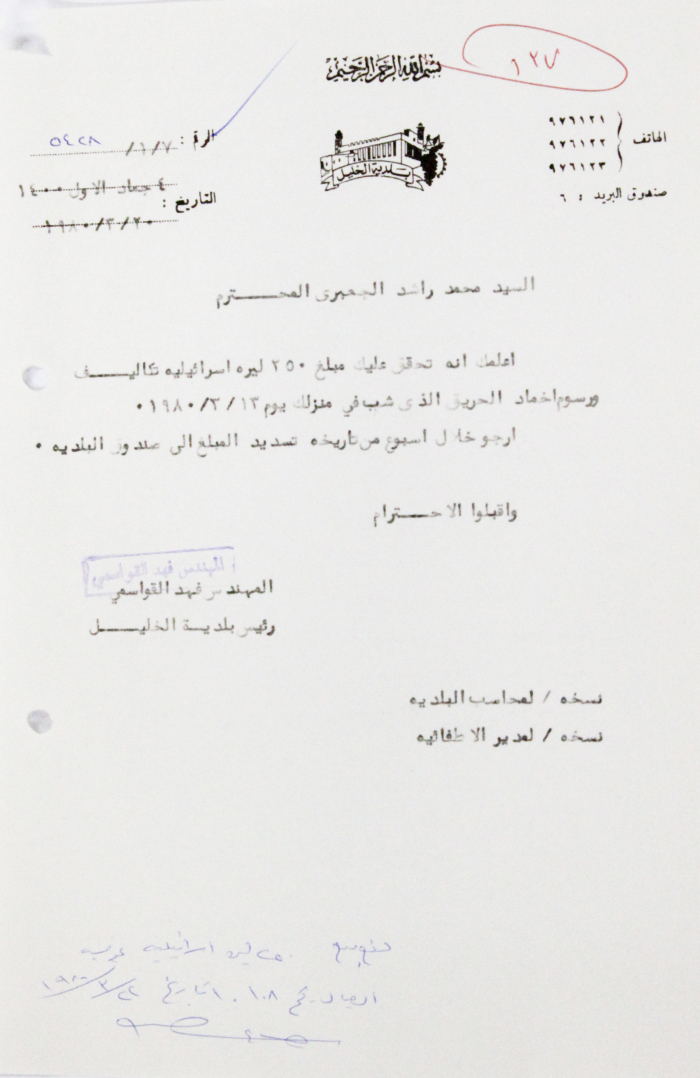 ١٣٧
بسم الله الرحمن الرحيم
الهاتف ٩٧٦١٢١
٩٧٦١٢٢
٩٧٦١٢٣
صندوق البريد : ٦
بلدية الخليل
الرقم : ٧/١/ ٥٤٢٨
٤ جماد الاول ١٤٠٠
التاريخ :
١٩٨٠/٣/٢٠
السيد محمد راشد الجعبرى المحـــترم
اعلمك انه تحقق عليك مبلغ ٢٥٠ ليره اسرائيليه تكاليــف
ورسوم اخماد الحريق الذى شب في منزلك يوم ١٩٨٠/٣/١٣ ٠
ارجو خلال اسبوع من تاريخه تسديد المبلغ الى صندوق البلديه ٠
واقبلوا الاحـــترام
المهندس فهد القواسمي
المهندس فهد القواسمي
رئيس بلديــة الخليـــل
نسخه / لمحاسب البلديه
نسخه / لمدير الاطفائيه
اسرائيلية
بتاريخ